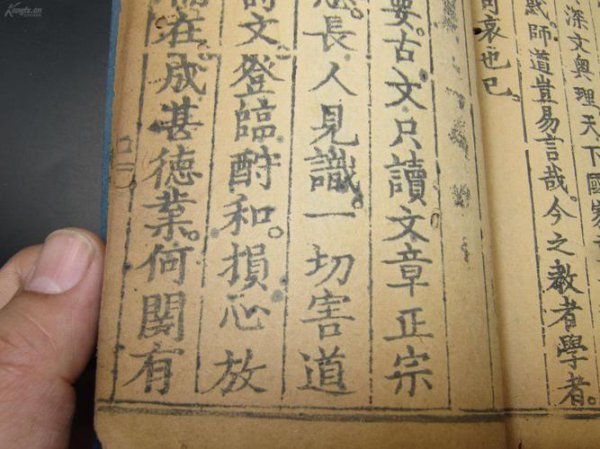 深文奧理天下國家
師道豈易言哉。今之教者學者。
哀也已。
要。古文只讀文章正宗
長人見識。一切害道
文登臨酬和。損心放
在成甚德業。何関有